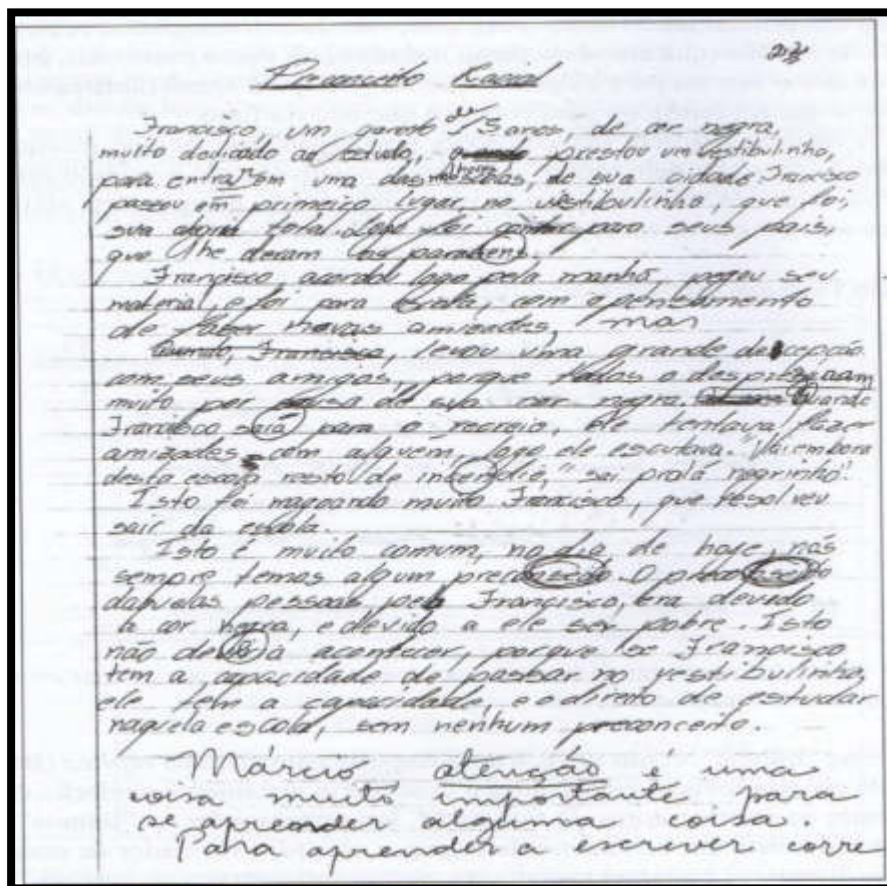 Preconceito Racial
Francisco, um garoto de 5 anos, de cor negra,
muito dedicado ao estudo, prestou um vestibulinho,
para entrar em uma das de sua cidade. Francisco
passou em primeiro lugar, no vestibulinho, que foi,
sua total. Logo foi para seus pais,
que lhe deram os parabens.
Francisco, acordou logo pela manhã, pegou seu
material, e foi para com o pensamento
de fazer novas amizades, mas
Francisco, levou uma grande decepção
com seus amigos, porque todos o
muito por causa de sua cor negra. Quando
Francisco saia para o recreio, ele tentava fazer
amizades com alguem, logo ele escutava. "Vai embora
desta escola resto de incendio," "sai pra lá negrinho".
Isto foi magoando muito Francisco, que resolveu
sair da escola.
Isto é muito comum, no dia, de hoje, nós
sempre temos algum O
daquelas pessoas pelo Francisco, era devido
a cor negra, e devido a ele ser pobre. Isto
não acontecer, porque se Francisco
tem a capacidade de passar no vestibulinho,
ele tem a capacidade, e o direito de estudar
naquela escola, sem nenhum preconceito.
Márcio atenção é uma
coisa muito importante para
se aprender alguma coisa.
Para aprender a escrever corre